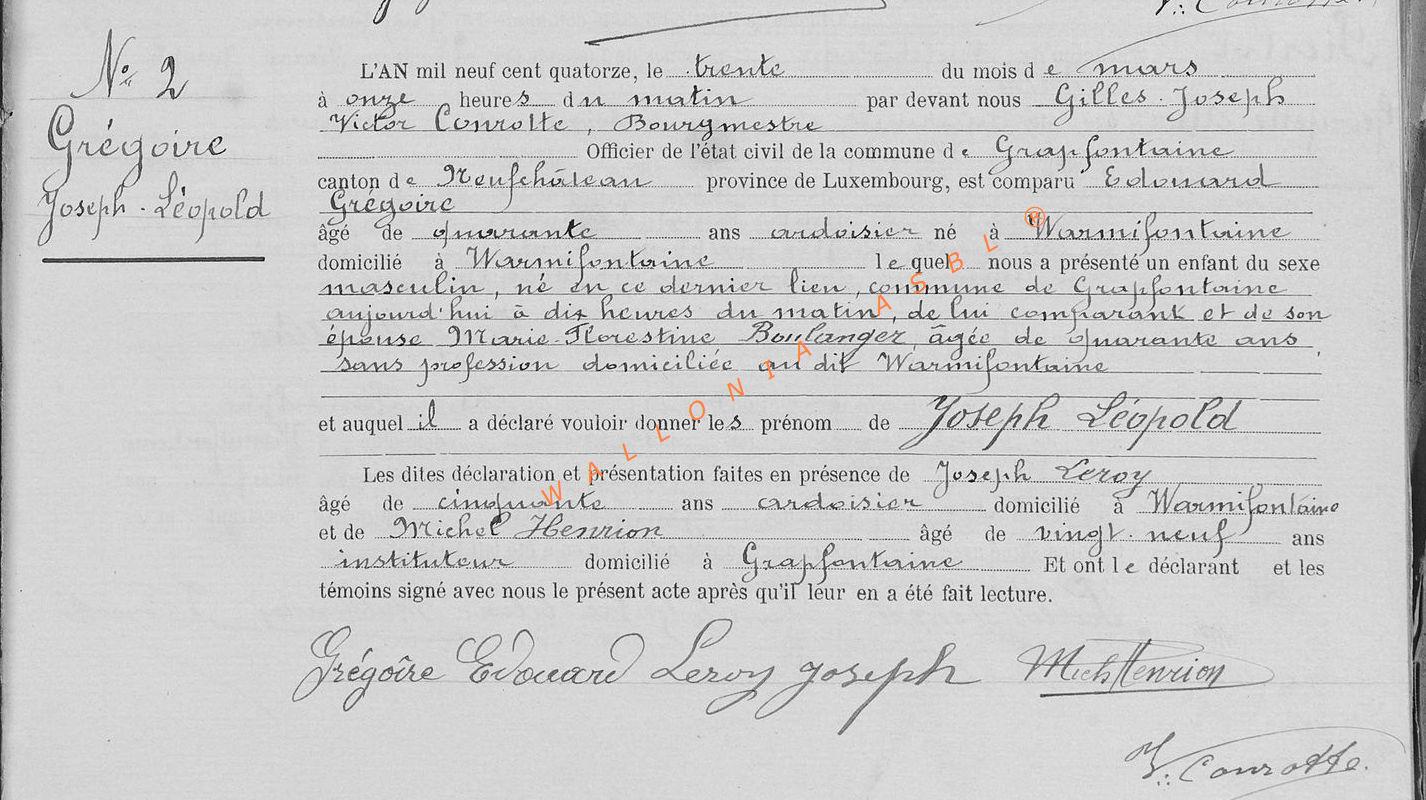 V. Conrotte
N° 2
Grégoire
Joseph-Léopold
L'AN mil neuf cent quatorze, le trente du mois de mars
à onze heures du matin par devant nous Gilles-Joseph
Victor Conrotte, Bourgmestre
Officier de l'état civil de la commune de Grapfontaine
canton de Neufchâteau province de Luxembourg, est comparu Edouard
Grégoire
âgé de quarante ans ardoisier né à Warmifontaine
domicilié à Warmifontaine lequel nous a présenté un enfant du sexe
masculin, né en ce dernier lieu, commune de Grapfontaine
aujourd'hui à dix heures du matin, de lui comparant et de son
épouse Marie-Florestine Boulanger, âgée de quarante ans
sans profession domiciliée au dit Warmifontaine
et auquel il a déclaré vouloir donner les prénom de Joseph Léopold
Les dites déclaration et présentation faites en présence de Joseph Leroy
âgé de cinquante ans ardoisier domicilié à Warmifontaine
et de Michel Henrion âgé de vingt-neuf ans
instituteur domicilié à Grapfontaine Et ont le déclarant et les
témoins signé avec nous le présent acte après qu'il leur en a été fait lecture.
Grégoire Edouard Leroy joseph Mich Henrion
V. Conrotte.
WALLONIA ASBL ®